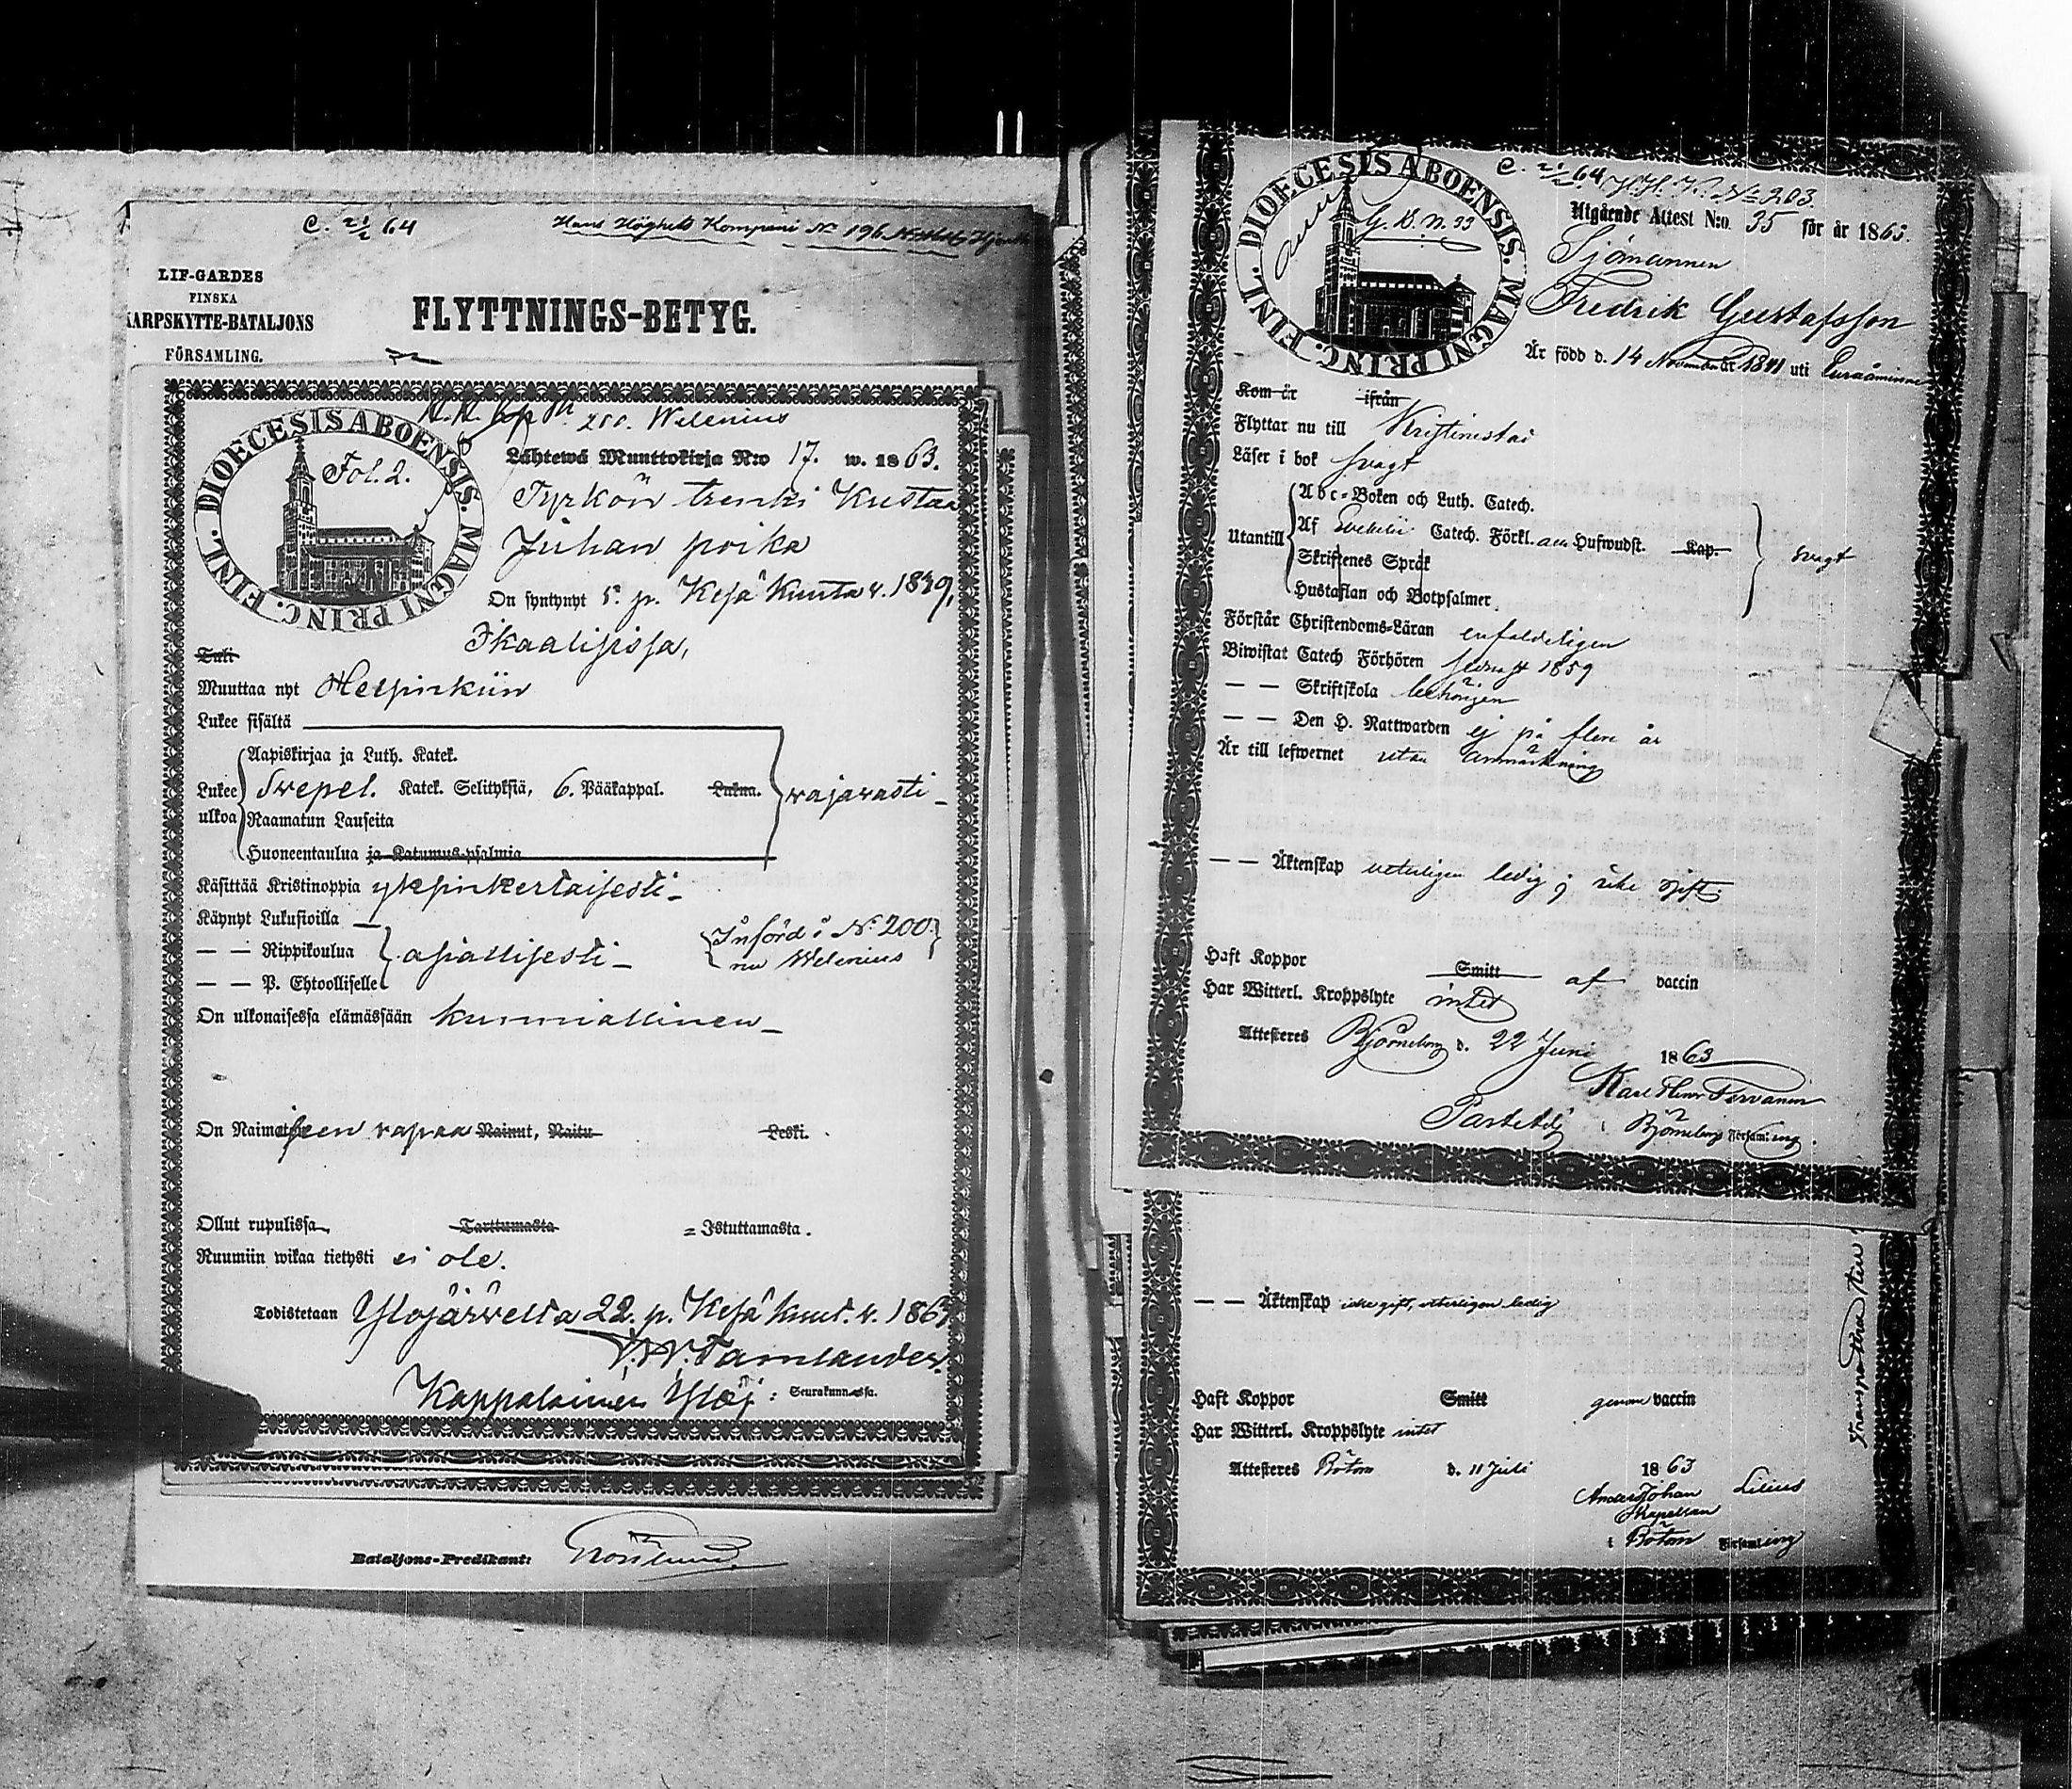 C. 21/2 64
Hans Höghets Kompani No 196
LIF-GARDES
FINSKA
KARPSKYTTE-BATALJONS
FÖRSAMLING.
FLYTTNINGS-BETYG.
200. Welenius
DIOECESIS ABOENSIS. MAGNI PRINC. FINL.
Fol. 2.
Lähtewä Muuttokirja N:o 17. w. 1863.
Tyrkön trenki Kustaa
Juhan poika
On syntynyt 5. p. Kesä Kuuta v. 1839,
Ikaalisissa,
Tuli
Muuttaa nyt Helsinkiin
Lukee sisältä
Aapiskirjaa ja Luth. Katek.
Lukee ulkoa Svepel. Katek. Selityksiä, 6. Pääkappal. Lukua. wajavasti
Raamatun Lauseita
Huoneentaulua ja Katumus-psalmia
Käsittää Kristinoppia yksinkertaisesti
Käynyt Lukusioilla
— — Rippikoulua asiallisesti
— — P. Ehtoolliselle
Införd i No 200
nu Welenius
On ulkonaisessa elämässään kunniallinen
On Naimiseen vapaa Nainut, Naitu Leski.
Ollut rupulissa Tarttumasta = Istuttamasta.
Ruumiin wikaa tietysti ei ole.
Todistetaan Ylöjärveltä 22. p. Kesä kuut. v. 1863
Tamlander
Kappalainen Ylöj: Seurakunnassa.
Bataljons-Predikant:
C. 21/2 64 H.H.K. No 203
DIOECESIS ABOENSIS. MAGNI PRINC. FINL.
G. B. N. 33
Utgående Attest N:o 35 för år 1863.
Sjömannen
Fredrik Gustafsson
Är född d. 14 November år 1841 uti Euraåminne
Kom år ifrån
Flyttar nu till Kristinestad
Läser i bok svagt
Abc-Boken och Luth. Catech.
Utantill Af Svebelii Catech. Förkl. alla Hufwudst. Kap. svagt
Skriftenes Språk
Hustaflan och Botpsalmer
Förstår Christendoms-Läran enfaldeligen
Biwistat Catech Förhören sednast 1859
— — Skriftskola behörigen
— — Den H. Nattwarden ej på flere år
Är till lefwernet utan anmärkning
— — Äktenskap veterligen ledig; icke gift.
Haft Koppor Smitt af vaccin
Har Witterl. Kroppslyte intet
Attesteres Björneborg d. 22 Juni 1863
Björneborgs Församling.
— — Äktenskap icke gift, veterligen ledig
Haft Koppor Smitt genom vaccin
Har Witterl. Kroppslyte intet
Attesteres Bötom d. 11 Juli 1863
Anders Johan Lilius
Kapellan
i Bötom Församling